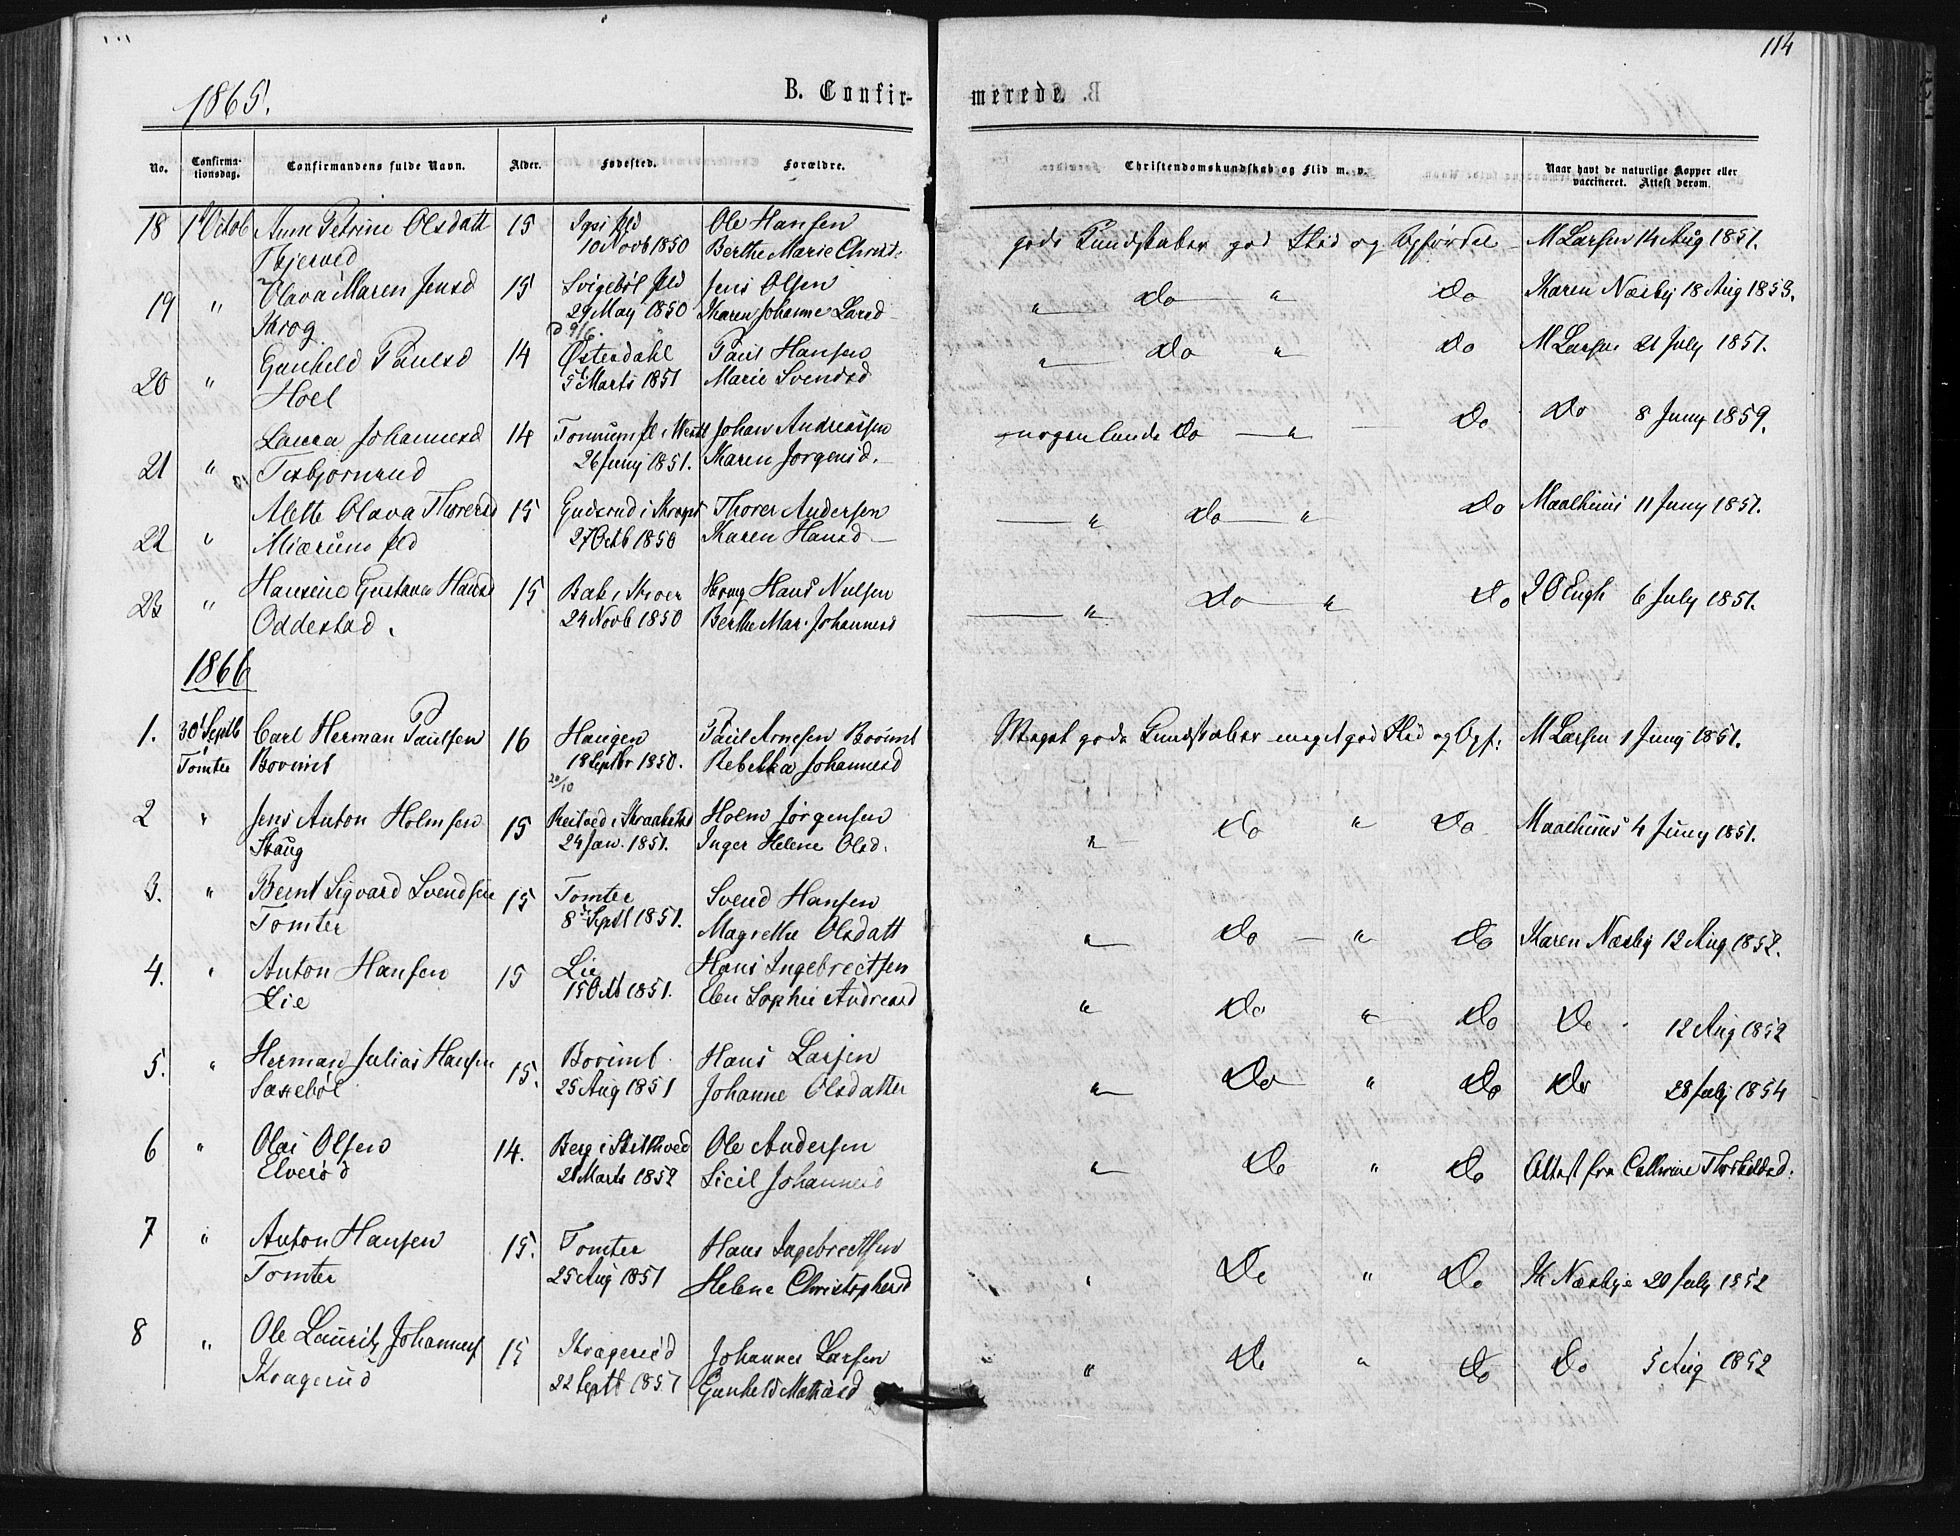 114
1865.
B. Confir-
merede.
No.
Confirma-
tionsdag.
Confirmandens fulde Navn.
Alder.
Fødested.
Forældre.
Christendomskundskab og Flid m. v.
Naar havt de naturlige Kopper eller
vaccineret. Attest derom.
18 1 Octob Anne Petrine Olsdatt 15 Ole Hansen gode Kundskaber god Flid og Opførsel M Larsen 14 Aug 1851.
10 Novb 1850 Berthe Marie Christ.
19 " Olava Maren Jensd 15 Jens Olsen " Do " Do Karen Næsby 18 Aug 1853.
Krog 29 May 1850 Karen Johanne Larsd
20 " Gunhild Paulsd 14 Østerdahl Paul Hansen " Do " Do M Larsen 21 July 1851.
Hoel 5 Marts 1851 Marie Svendsd
21 " Laura Johannesd 14 Johan Andreassen nogenlunde Do " Do Do 8 Juny 1859.
Torbjørnrud 26 Juny 1851. Karen Jørgensd.
22 " Alette Olava Thoresd 15 Guderud i Thorer Andersen " Do " Do Maalhuus 11 Juny 1851.
27 Octb 1850 Karen Hansd
23 " Hansine Gustava Hansd 15 Hans Nielsen " Do " Do Engh 6 July 1851.
Oddestad. 24 Novb 1850 Berthe Mar. Johannesd
1866
1. 30 Septb Carl Herman Paulsen 16 Haugen Paul Arnesen Bovimb Meget gode Kundskaber meget god Flid og Opf. M Larsen 1 Juny 1851.
Tomter Bovimb 18 Septbr 1850. Rebekka Johannesd
20/10
2 " Jens Anton Holmsen 15 Holm Jørgensen " Do " Do Maalhuus 4 Juny 1851.
Skaug 24 Jan. 1851. Inger Helene Olsd.
3. " Bernt Sigvard Svendsen 15 Tomter Svend Hansen " Do " Do Karen Næsby 12 Aug 1852.
Tomter 8 Septb 1851. Magrethe Olsdatt
4. " Anton Hansen 15 Lie Hans Ingebrectsen " Do " Do Do 12 Aug 1852
Lie 15 Oct 1851. Elen Sophie Andreasd
5. " Herman Julius Hansen 15. Bovimb Hans Larsen " Do " Do Do 28 July 1854
Saxebøl 25 Aug 1851 Johanne Olsdatter
6 " Olai Olsen 14. Berg i Ole Andersen " Do " Do Attest fra Cathrine Thorkildsd.
Elverød 21 Marts 1852 Sicil Johannesd
7 " Anton Hansen 15. Tomter Hans Ingebrectsen " Do " Do K Næsbye 20 July 1852
Tomter 25 Aug 1851 Helene Christophersd
8 " Ole Lauritz Johannes 15 Kragerud Johannes Larsen " Do " Do Do 5 Aug 1852
Kragerud 22 Septb 1851 Gunhild Mathisd